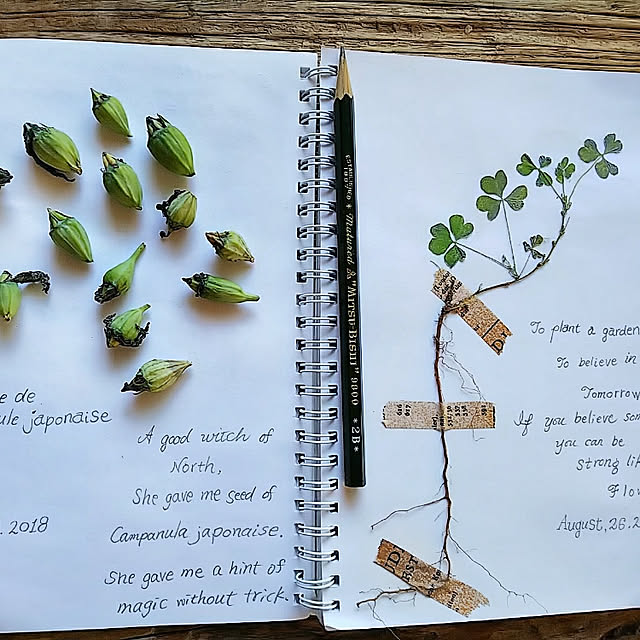 e de
ule japonaise
. 2018
A good witch of
North,
She gave me seed of
Campanula japonaise.
She gave me a hint of
magic without trick.
Matured by "MITSU-BISHI" 9000 * 2B *
To plant a garden
To believe in
Tomorrow
If you believe som
you can be
strong li
Flow
August, 26. 2